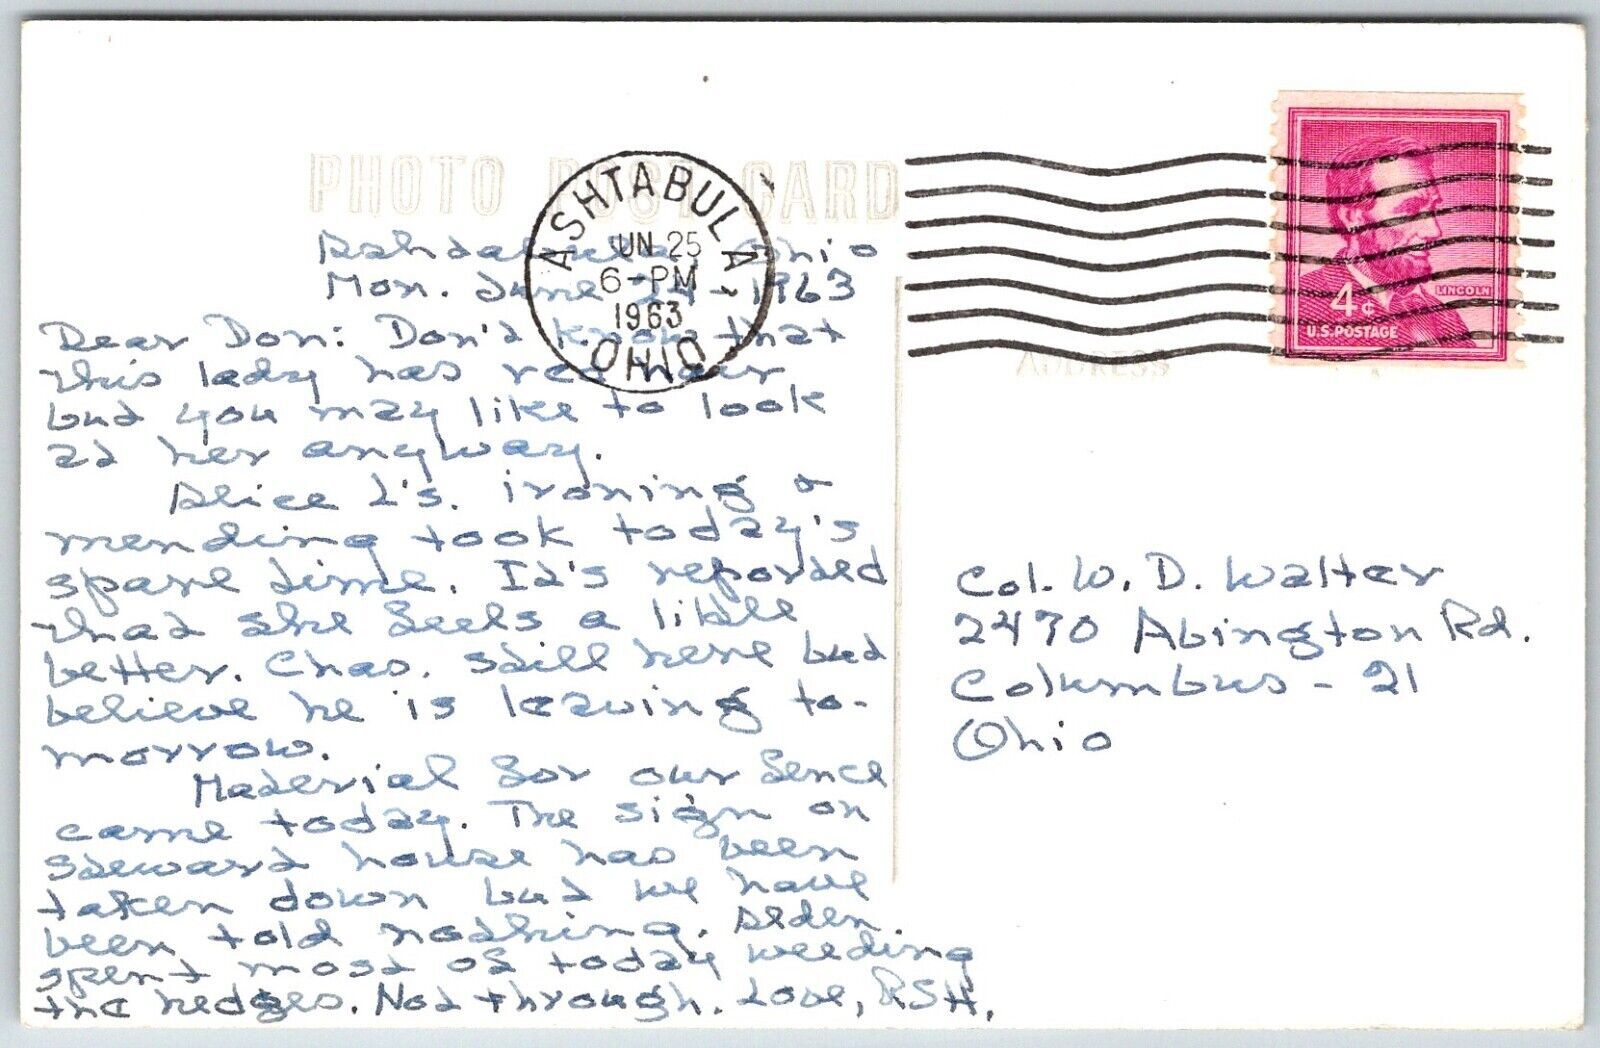 PHOTO POST CARD
ASHTABULA
JUN 25
6-PM
1963
OHIO
4¢
LINCOLN
U.S. POSTAGE
ADDRESS
Ashtabula, Ohio
Mon. June 24-1963
Dear Don: Don't know that
this lady has red hair
but you may like to look
at her anyway.
Alice L's. ironing &
mending took today's
spare time. It's reported
that she feels a little
better. Chas. still here but
believe he is leaving to-
morrow.
Material for our fence
came today. The sign on
Steward house has been
taken down but we have
been told nothing. Alden
spent most of today weeding
the hedges. Not through. Love, RSH.
Col. W. D. Walter
2470 Abington Rd.
Columbus - 21
Ohio